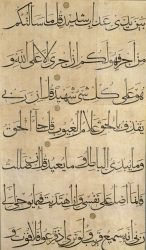 بين يدي عذاب شديد قل ما سألتكم
من أجر فهو لكم إن أجري إلا على الله و
هو على كل شيء شهيد قل إن ربي
يقذف بالحق علام الغيوب قل جاء الحق
وما يبدئ الباطل وما يعيد قل إن ضللت
فإنما أضل على نفسي وإن اهتديت فبما يوحي إلي
ربي إنه سميع قريب ولو ترى إذ فزعوا فلا فوت و